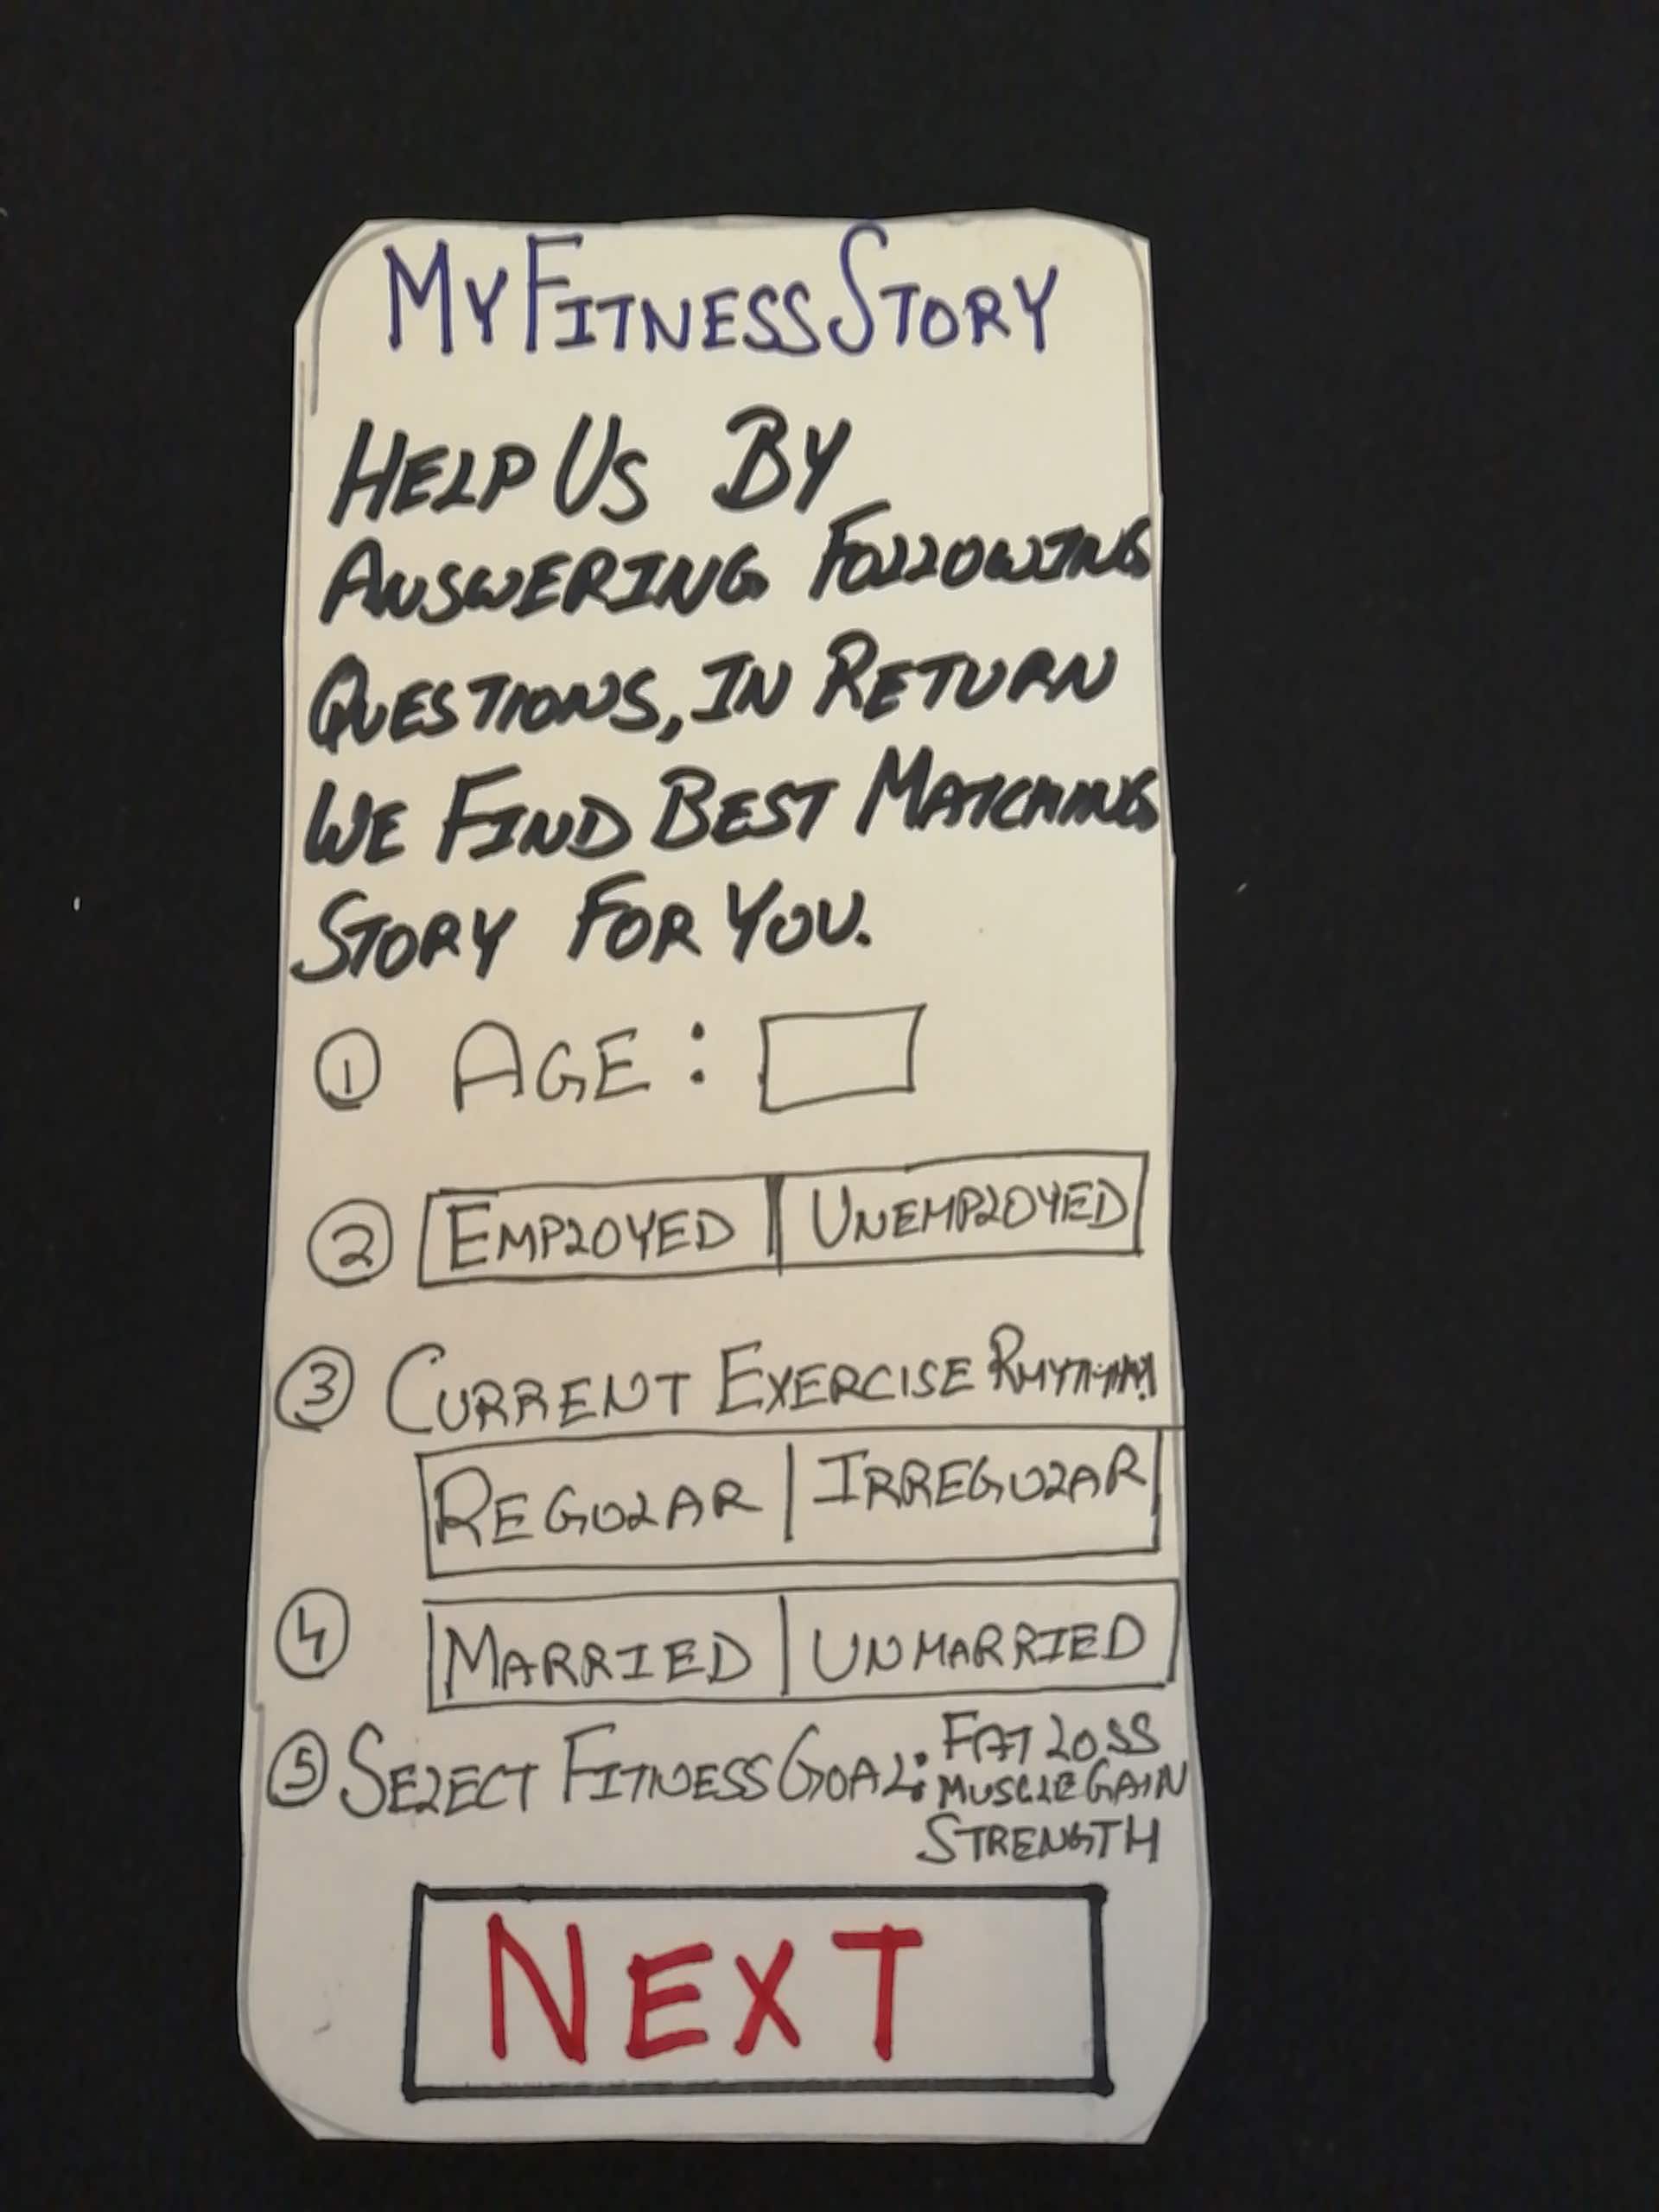 MYFITNESSSTORY
HELP US BY
ANSWERING FOLLOWING
QUESTIONS, IN RETURN
WE FIND BEST MATCHING
STORY FOR YOU.
1 AGE :
2 EMPLOYED | UNEMPLOYED
3 CURRENT EXERCISE RHYTHM
REGULAR | IRREGULAR
4 MARRIED | UNMARRIED
5 SELECT FITNESS GOAL: FAT LOSS
MUSCLE GAIN
STRENGTH
NEXT